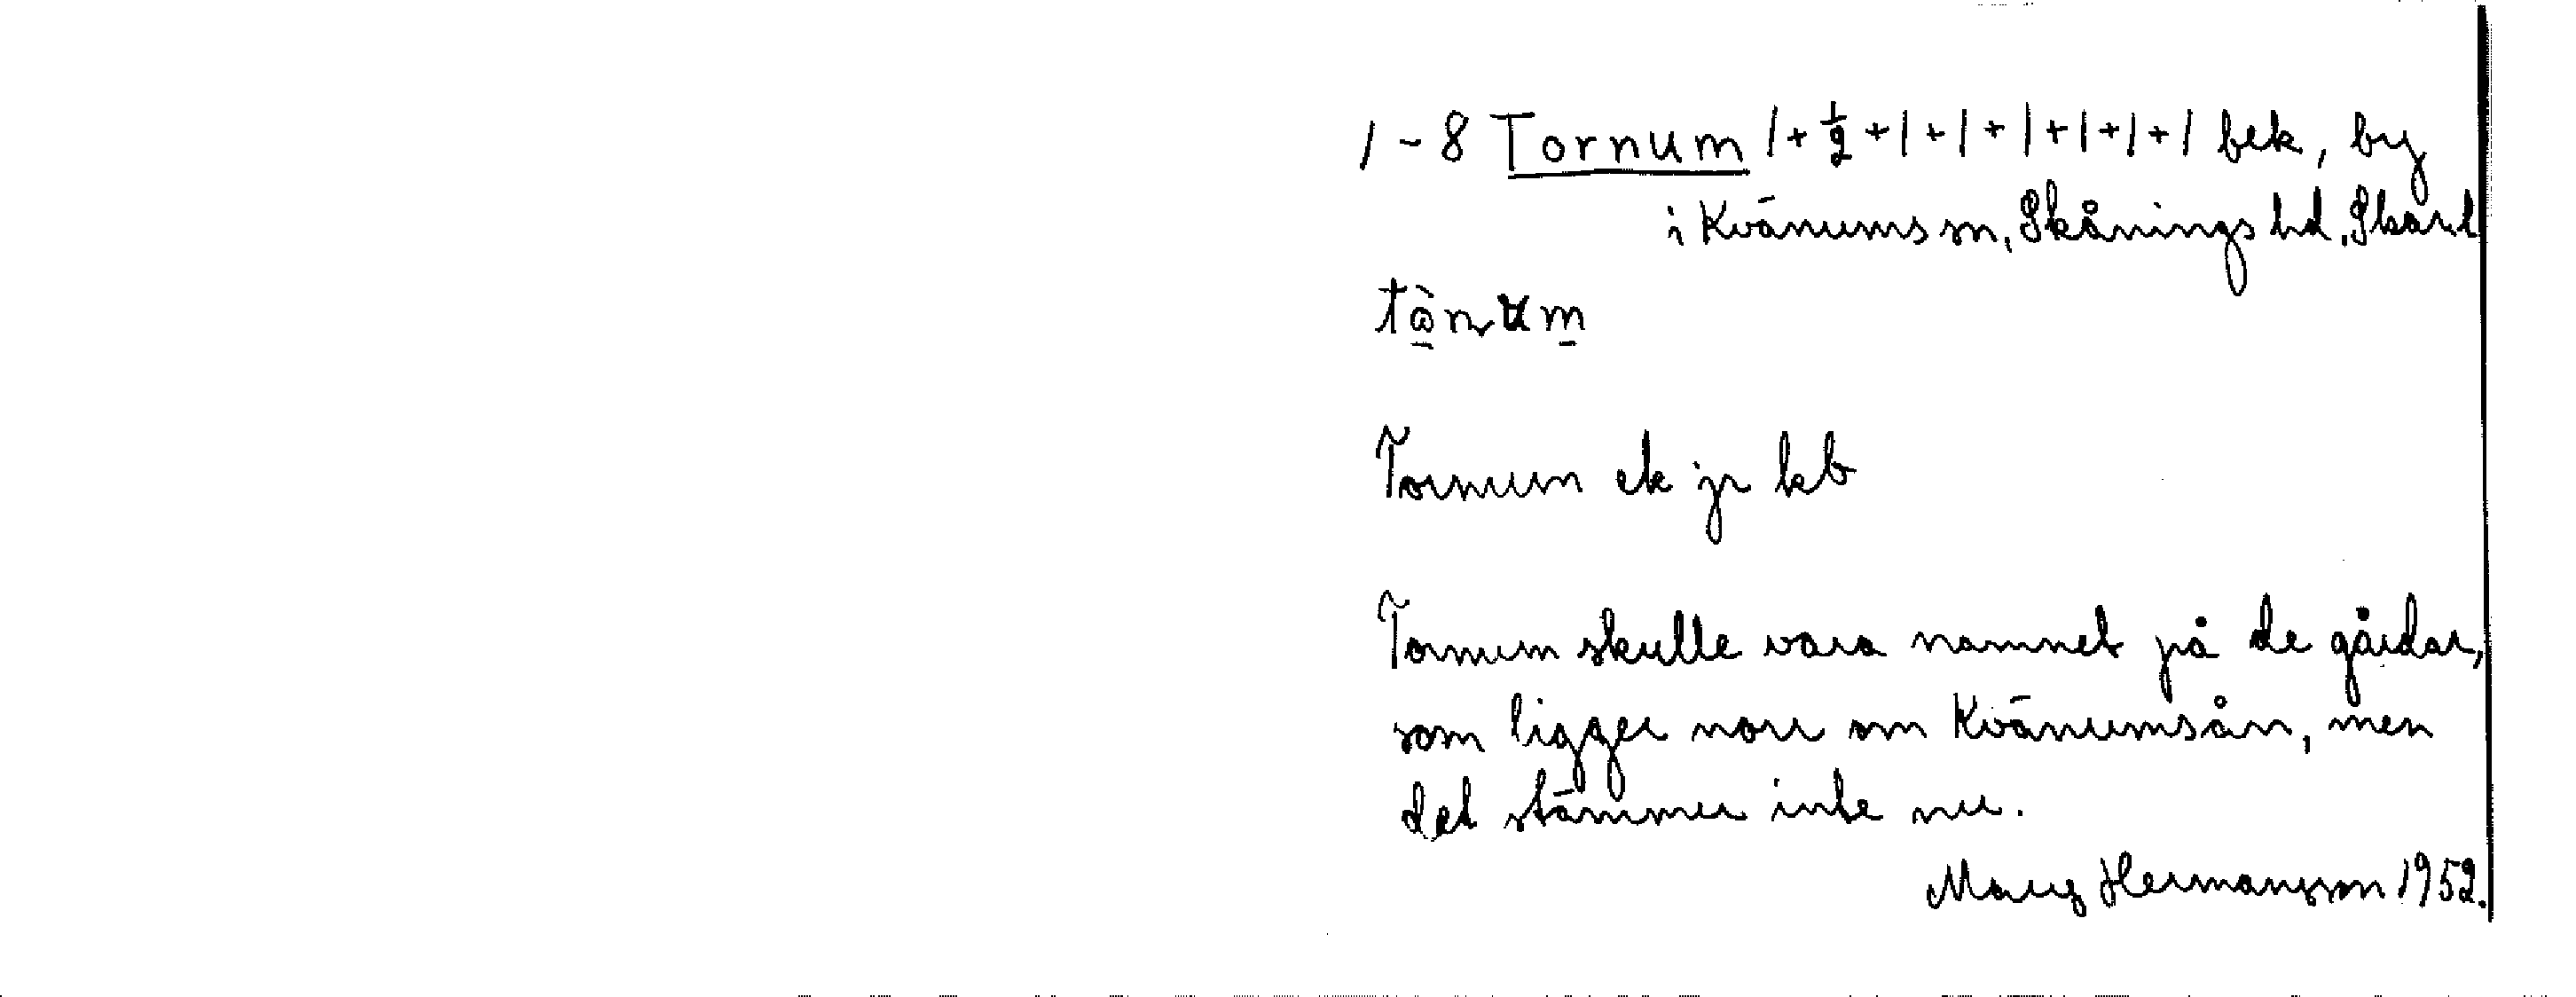 1-8 Tornum 1+½+1+1+1+1+1+1 bek, by
i Kvänums sn, Skånings hd, Skarl
Tornum ek jr kb
Tornum skulle vara namnet på de gårdar,
som ligger norr om Kvänumsån, men
det stämmer inte nu.
Mary Hermansson 1952.